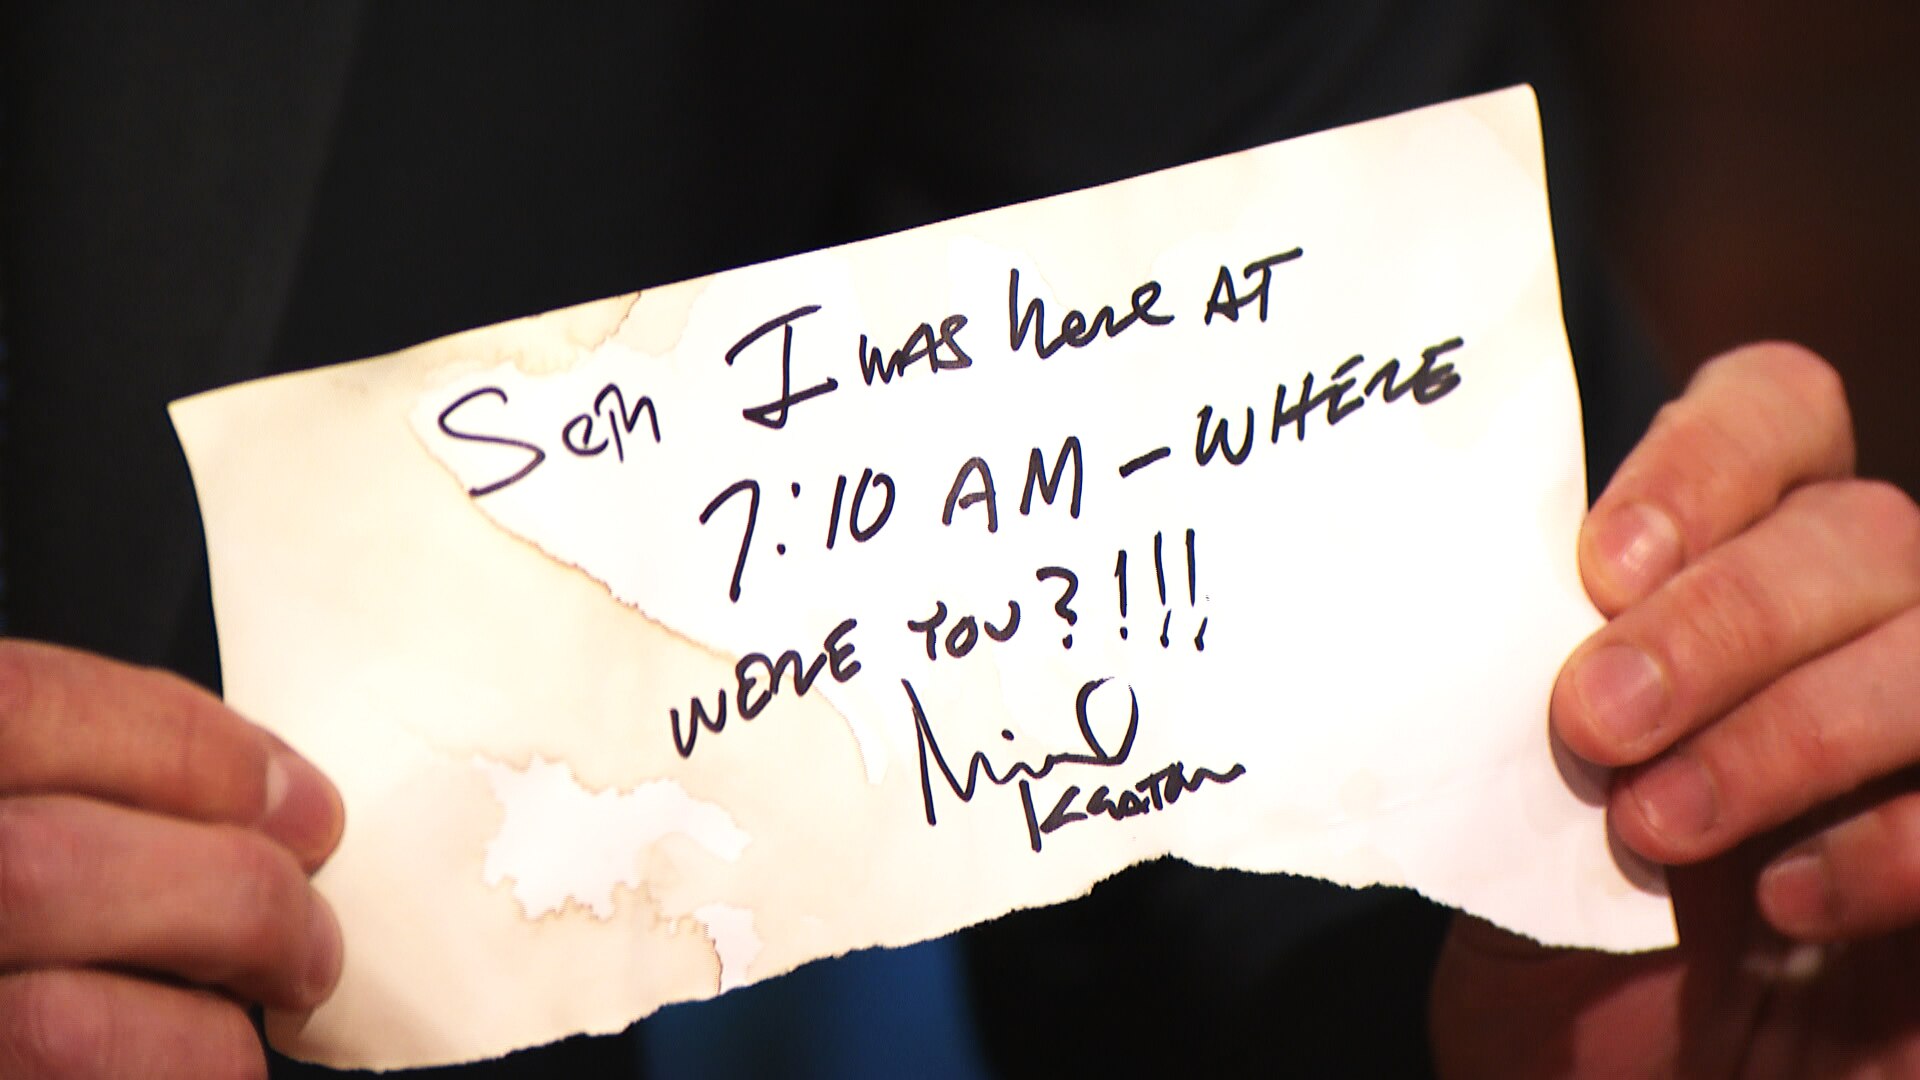 Seth I was here AT
7:10 AM - WHERE
WERE YOU?!!!
Michael
Keaton